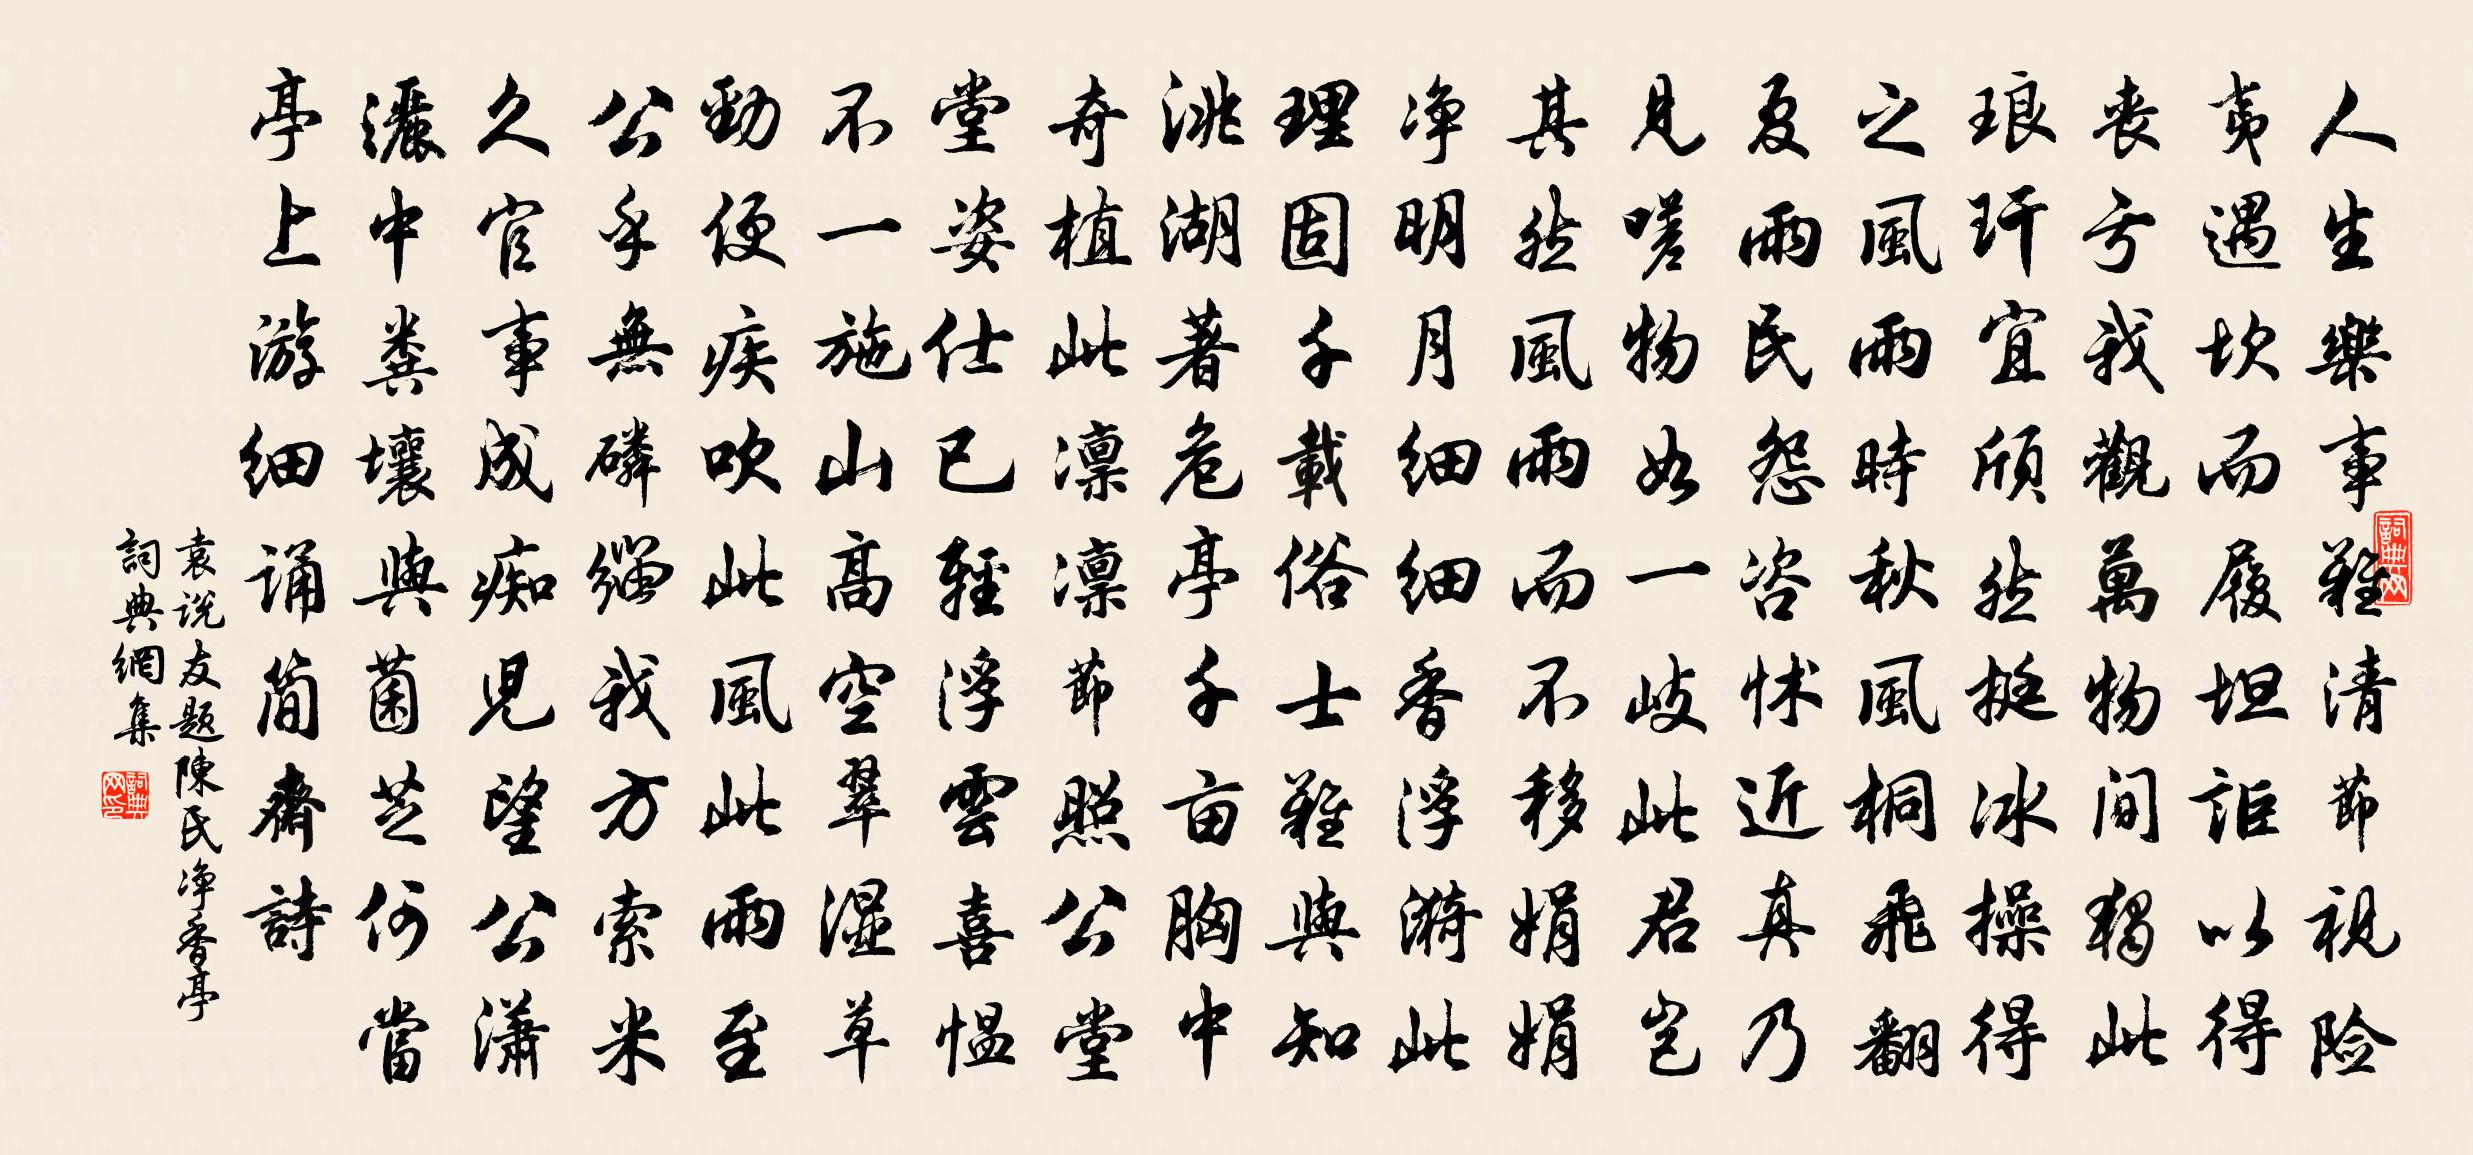 人生樂事難清節視險
夷遇坎而履坦詎以得
喪亏我觀萬物間獨此
琅玕宜頎然挺冰操得
之風雨時秋風桐飛翻
夏雨民怨咨怵近真乃
見嗟物如一歧此君豈
其然風雨而不移娟娟
净明月細細香浮漪此
理固千載俗士難與知
洮湖著危亭千亩胸中
奇植此凛凛節照公堂
堂姿仕已輕浮雲喜愠
不一施山高空翠濕草
勁便疾吹此風此雨至
公乎無磷緇我方索米
久官事成痴兒望公瀟
灑中粪壤與菌芝何當
亭上游細誦簡齋詩
袁说友题陳民净香亭
詞典網集
詞典网
詞典网印